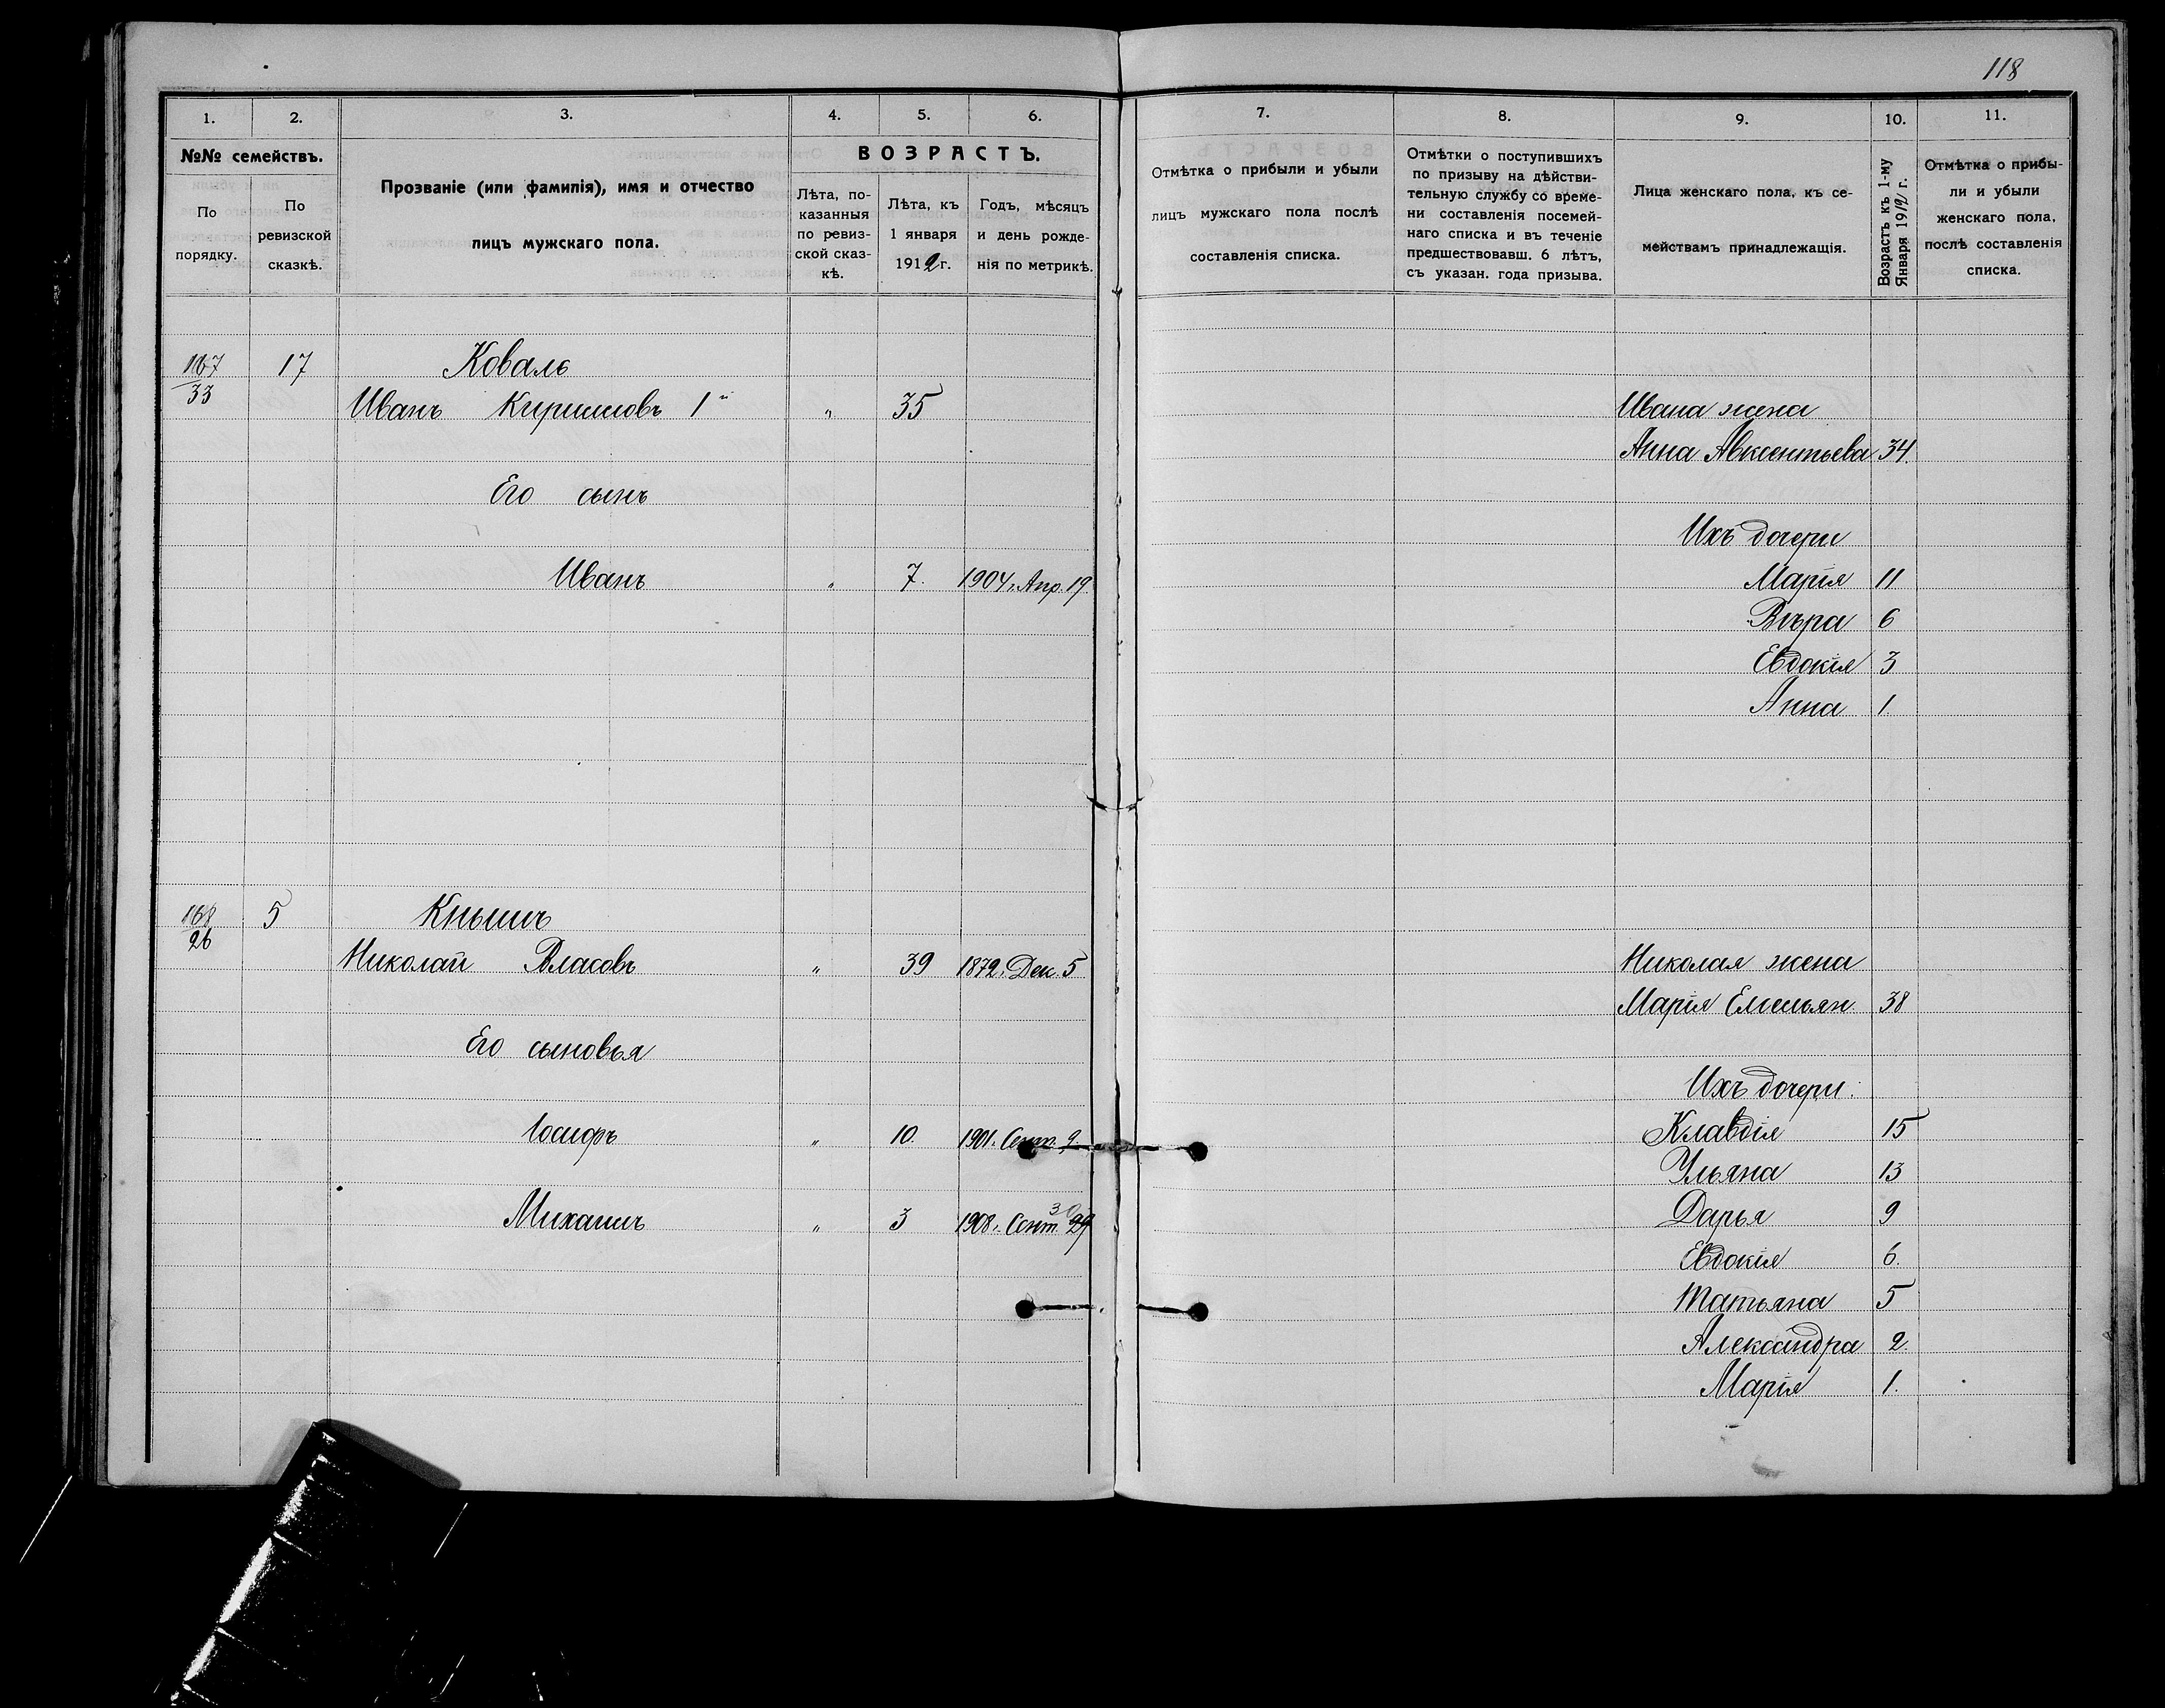 118
1. 2. 3. 4. 5. 6. 7. 8. 9. 10. 11.
№№ семействъ.
По порядку.
По ревизской сказкѣ.
Прозваніе (или фамилія), имя и отчество
лицъ мужскаго пола.
ВОЗРАСТЪ.
Лѣта, по-
казанныя
по ревиз-
ской сказ-
кѣ.
Лѣта, къ
1 января
1912 г.
Годъ, мѣсяцъ
и день рожде-
нія по метрикѣ.
Отмѣтка о прибыли и убыли
лицъ мужскаго пола послѣ
составленія списка.
Отмѣтки о поступившихъ
по призыву на дѣйстви-
тельную службу со време-
ни составленія посемей-
наго списка и въ теченіе
предшествовавш. 6 лѣтъ,
съ указан. года призыва.
Лица женскаго пола, къ се-
мействамъ принадлежащія.
Возрастъ къ 1-му
Января 1912 г.
Отмѣтка о прибы-
ли и убыли
женскаго пола,
послѣ составленія
списка.
167 17 Коваль
33
Иванъ Кирилловъ 1й „ 35 Ивана жена
Анна Авксентьева 34.
Его сынъ
Ихъ дочери
Иванъ „ 7. 1904. Апр. 19. Марія 11
Вѣра 6
Евдокія 3
Анна 1.
168 5 Кнышъ
26
Николай Власовъ „ 39 1872. Дек. 5 Николая жена
Марія Емельян. 38
Его сыновья
Ихъ дочери.
Іосифъ „ 10. 1901. Сент. 9. Клавдія 15
Ульяна 13
Михаилъ „ 3 1908. Сент. 29 30 Дарья 9
Евдокія 6.
Татьяна 5
Александра 2.
Марія 1.